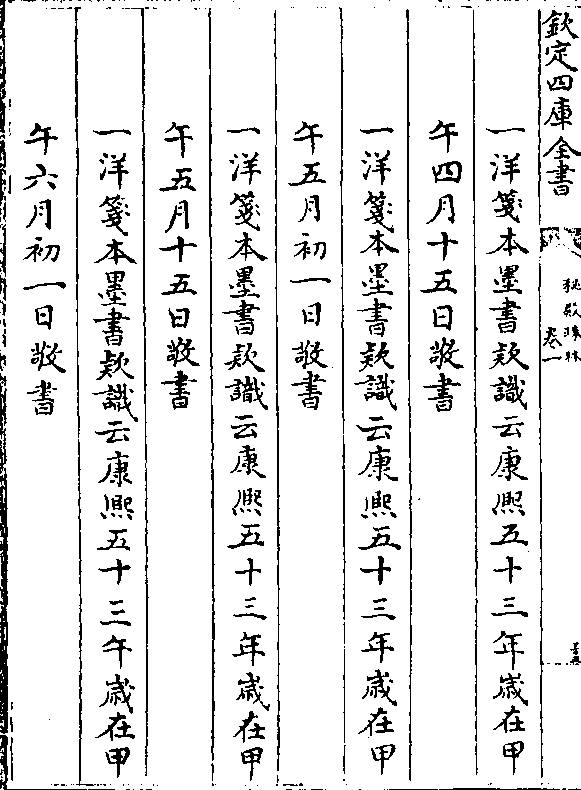 欽定四庫全書
秘殿珠林
卷一
一洋箋本墨書欵識云康熙五十三年歳在甲
午四月十五日敬書
一洋箋本墨書欵識云康熙五十三年歳在甲
午五月初一日敬書
一洋箋本墨書欵識云康熙五十三年歳在甲
午五月十五日敬書
一洋箋本墨書欵識云康熙五十三午歳在甲
午六月初一日敬書